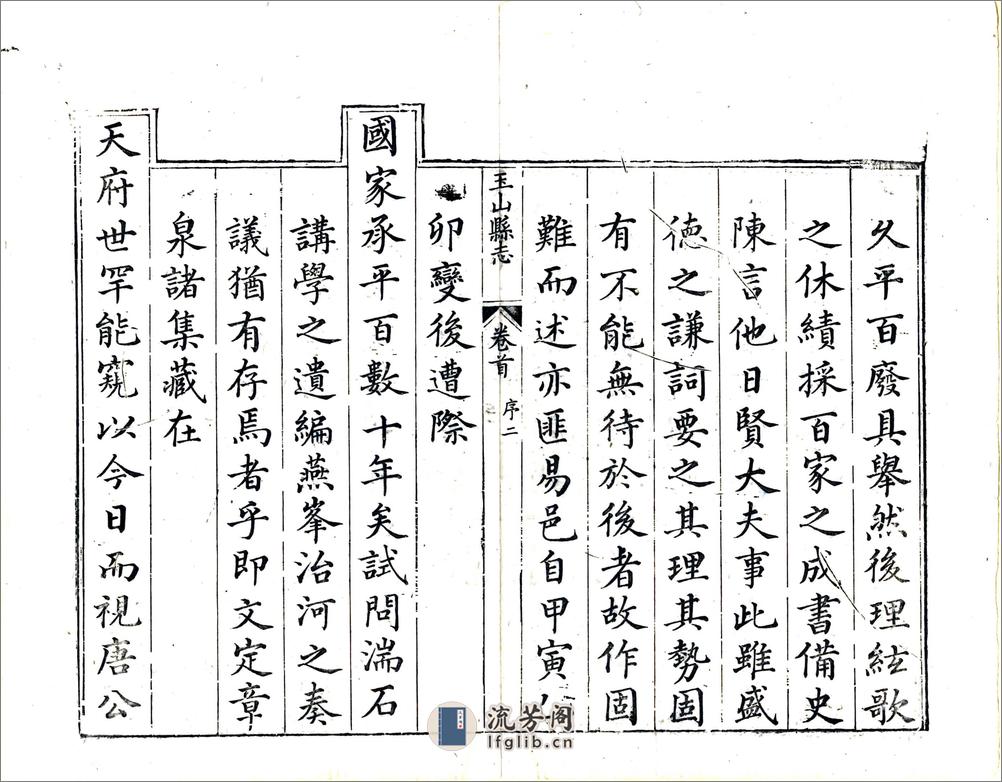 久平百廢具舉然後理絃歌
之休績採百家之成書備史
陳言他日賢大夫事此雖盛
德之謙詞要之其理其勢固
有不能無待於後者故作固
難而述亦匪易邑自甲寅
玉山縣志 卷首 序二
卯變後遭際
國家承平百數十年矣試問湍石
講學之遺編燕峯治河之奏
議猶有存焉者乎即文定章
泉諸集藏在
天府世罕能窺以今日而視唐公
流芳阁
lfglib.cn